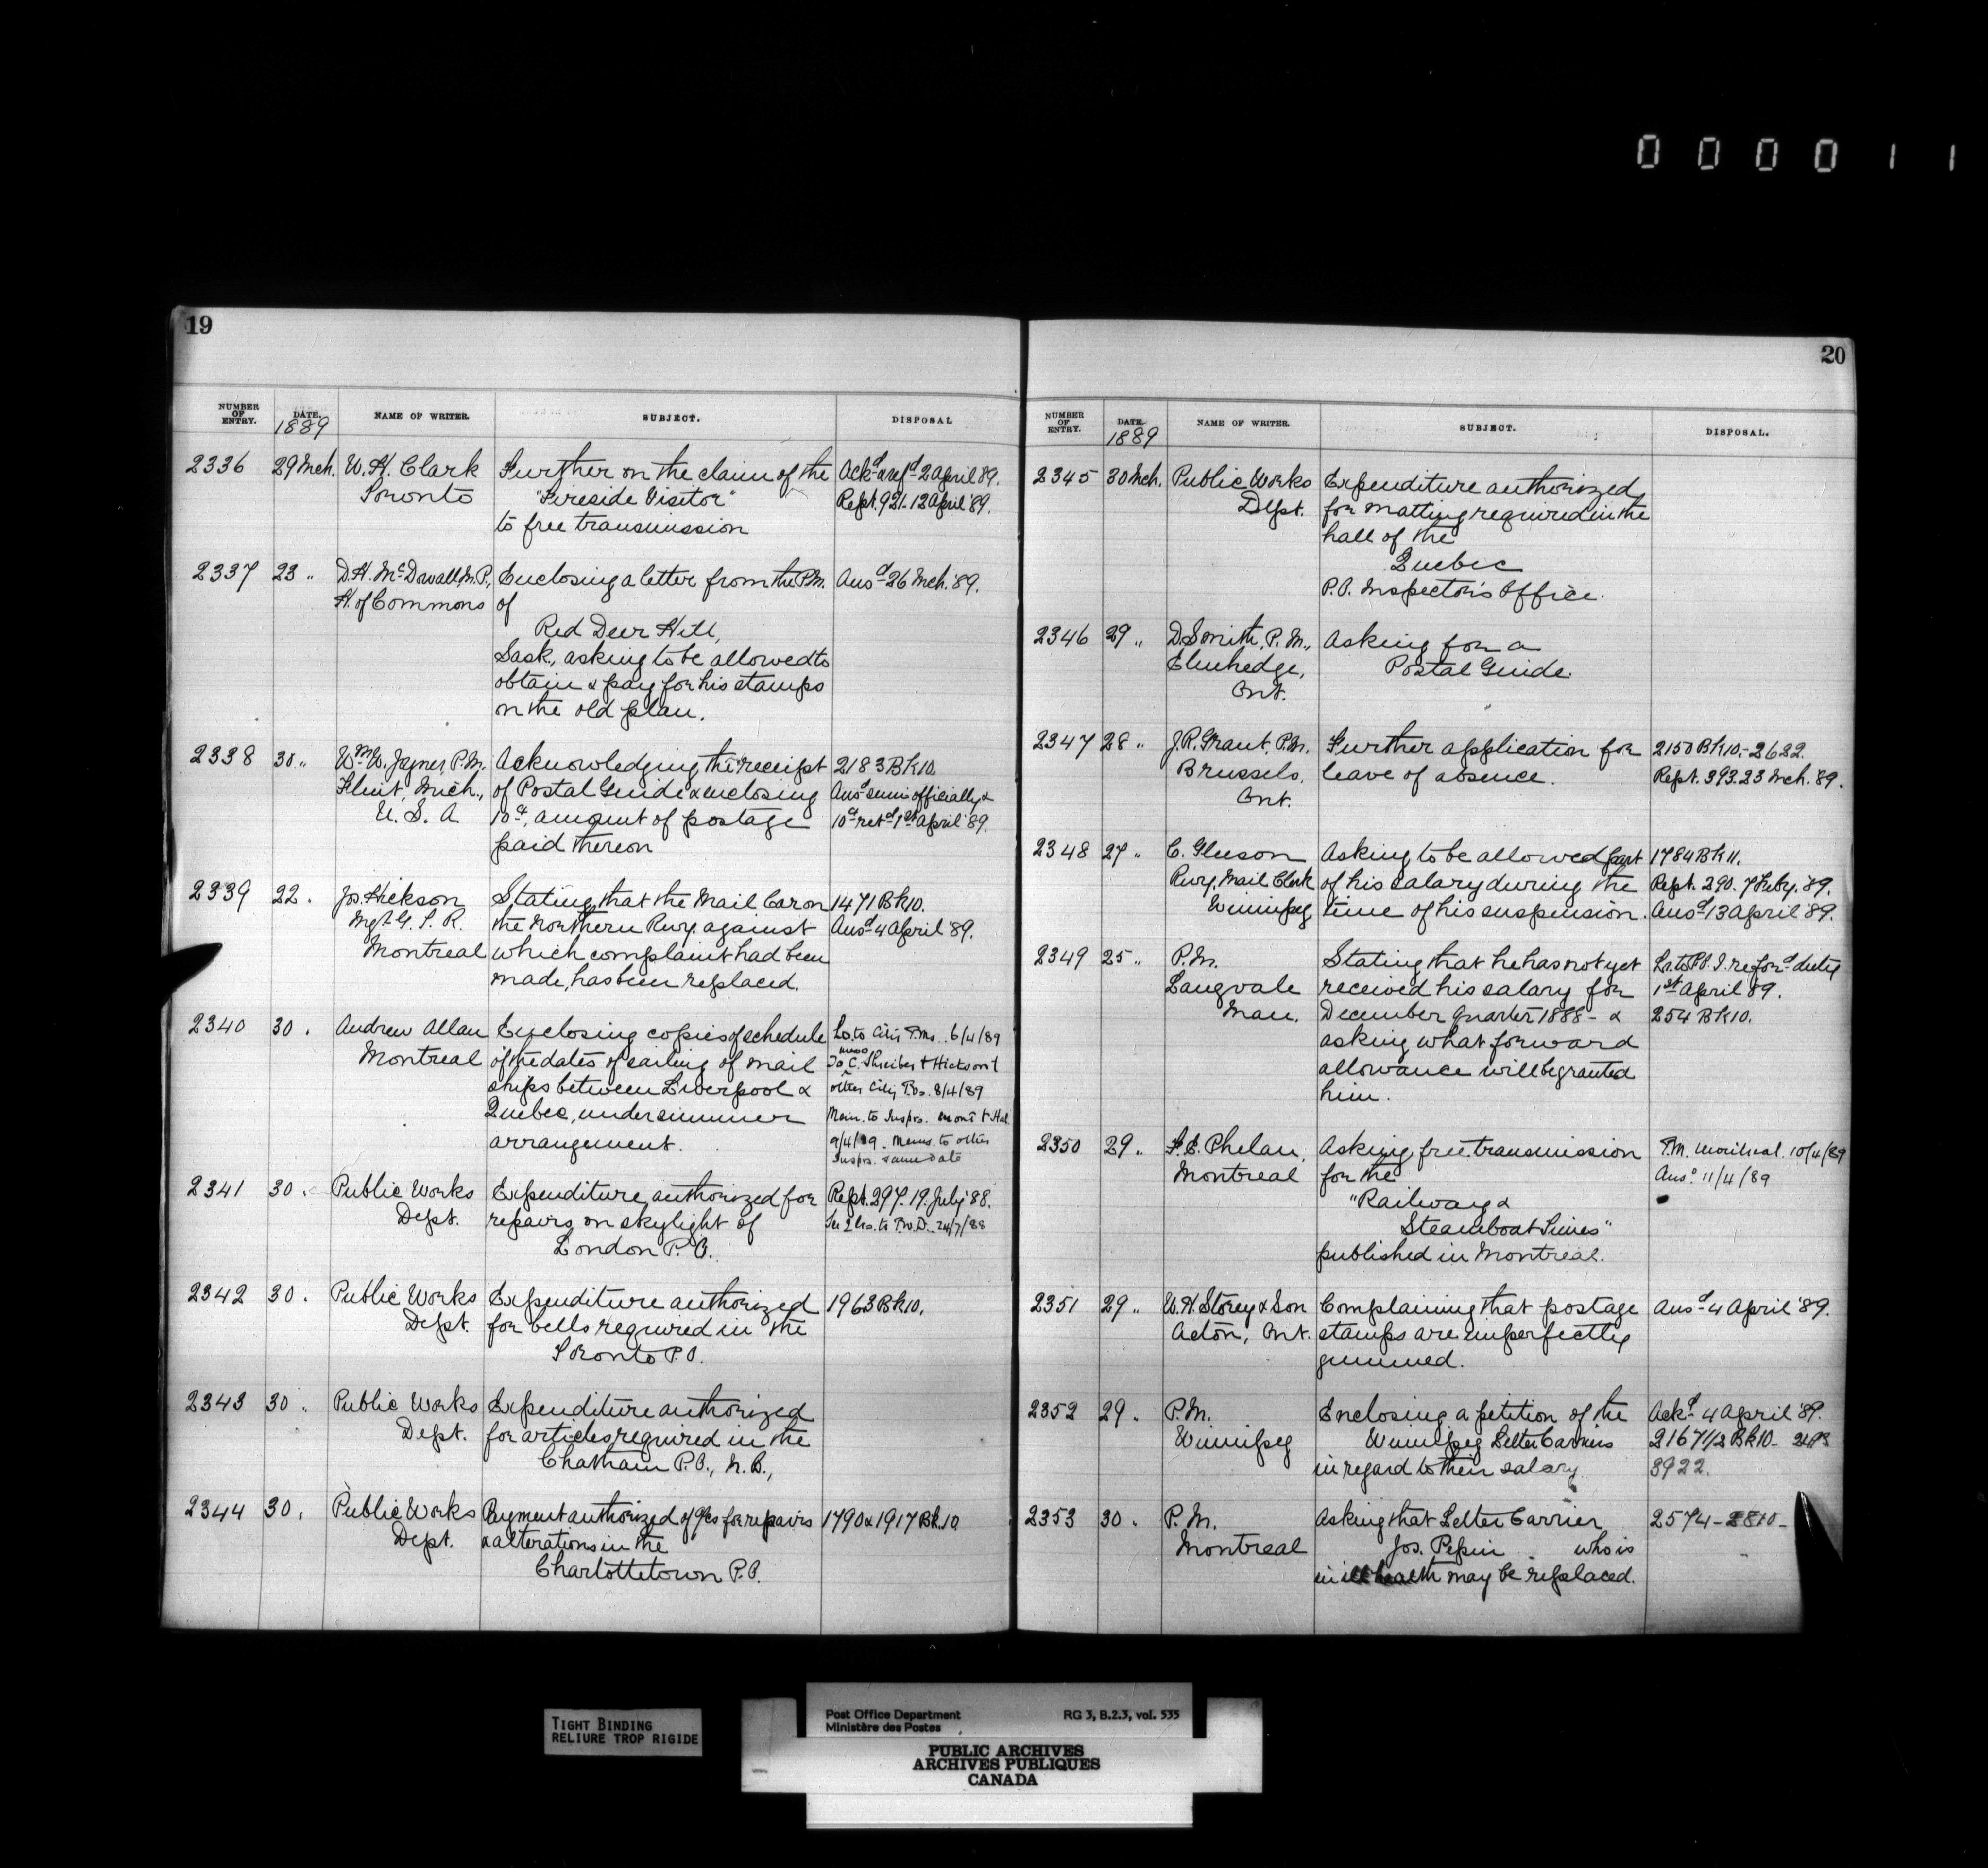 000011
19
NUMBER OF ENTRY. DATE. 1889 NAME OF WRITER. SUBJECT. DISPOSAL
2336 29 Mch. W. H. Clark Further on the claim of the Ackd & refd 2 April 89.
Toronto "Fireside Visitor" Rept. 921-12 April '89.
to free transmission
2337 23 " D. H. McDowall, M.P., Enclosing a letter from the P.M. Ansd 26 Mch. '89.
H. of Commons of
Red Deer Hill,
Sask., asking to be allowed to
obtain & pay for his stamps
on the old plan.
2338 30 " Wm. W. Joyner, P.M. Acknowledging the receipt 2183 Bk 10.
Flint, Mich., of Postal Guide & enclosing Ansd semi officially &
U. S. A. 10 cts, amount of postage 10 cts retd 1st April '89.
paid thereon
2339 22 . Jos. Hickson Stating that the Mail Car on 1471 Bk 10.
Mgr. G. T. R. the Northern Rwy. against Ansd 4 April '89.
Montreal which complaint had been
made, has been replaced.
2340 30 . Andrew Allan Enclosing copies of schedule Lr. to City P.Ms. 6/4/89
Montreal of the dates of sailing of mail To C. Shreiber & Hickson &
ships between Liverpool & other City P.Os. 8/4/89
Quebec, under summer Mem. to Insprs. Mont & Hal
arrangement. 9/4/89 - Memo. to other
Insprs. same date
2341 30 . Public Works Expenditure authorized for Rept. 297. 19. July '88.
Dept. repairs on skylight of 24/7/88
London P.O.
2342 30 . Public Works Expenditure authorized 1963 Bk 10.
Dept. for bells required in the
Toronto P.O.
2343 30 . Public Works Expenditure authorized
Dept. for articles required in the
Chatham P.O., N.B.,
2344 30 . Public Works Payment authorized of for repairs 1790 & 1917 Bk. 10
Dept. & alterations in the
Charlottetown P.O.
20
NUMBER OF ENTRY. DATE. 1889 NAME OF WRITER. SUBJECT. DISPOSAL.
2345 30 Mch. Public Works Expenditure authorized
Dept. for matting required in the
hall of the
Quebec
P.O. Inspector's Office.
2346 29 " D. Smith, P.M., Asking for a
Elmhedge, Postal Guide.
Ont.
2347 28 " J. R. Grant, P.M. Further application for 2150 Bk 10.- 2622.
Brussels, leave of absence. Rept. 393. 23 Mch. '89.
Ont.
2348 27 " C. Gleeson Asking to be allowed part 1784 Bk 11.
Rwy. Mail Clerk of his salary during the Rept. 290. 7 Feby. '89.
Winnipeg time of his suspension. Ansd 13 April '89.
2349 25 " P.M. Stating that he has not yet Lr. to P.O.I. re ford duty
Langvale received his salary for 1st April 89.
Man. December quarter 1888 - & 254 Bk 10.
asking what forward
allowance will be granted
him.
2350 29 " F. E. Phelan, Asking free transmission P.M. Montreal 10/4/89
Montreal for the Ansd. 11/4/89
"Railway &
Steamboat Times"
published in Montreal.
2351 29 " W. H. Storey & Son Complaining that postage Ansd 4 April '89.
Acton, Ont. stamps are imperfectly
gummed.
2352 29 . P.M. Enclosing a petition of the Ackd 4 April '89.
Winnipeg Winnipeg Letter Carriers 2167 1/2 Bk 10-
in regard to their salary. 3922.
2353 30 . P.M. Asking that Letter Carrier 2574-
Montreal Jos. Pepin who is
in ill health may be replaced.
TIGHT BINDING
RELIURE TROP RIGIDE
Post Office Department RG 3, B.2.3, vol. 535
Ministère des Postes
PUBLIC ARCHIVES
ARCHIVES PUBLIQUES
CANADA